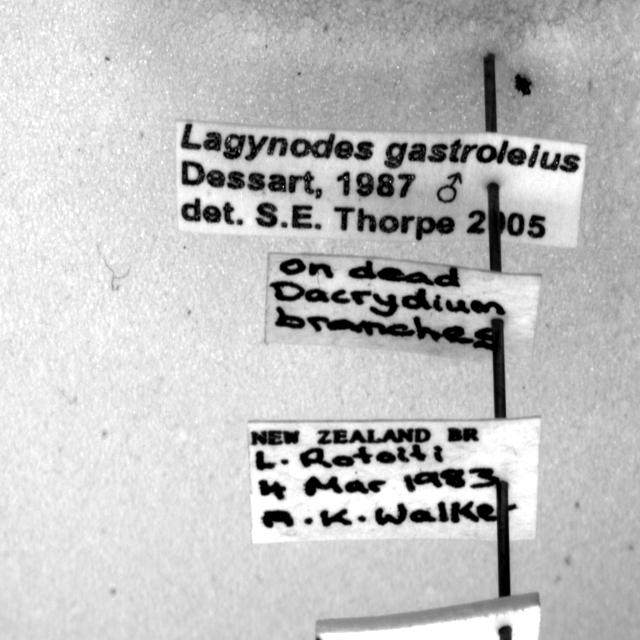 Lagynodes gastroleius
Dessart, 1987 ♂
det. S.E. Thorpe 2005
On dead
Dacrydium
branches
NEW ZEALAND BR
L. Rotoiti
4 Mar 1983
A.K. Walker